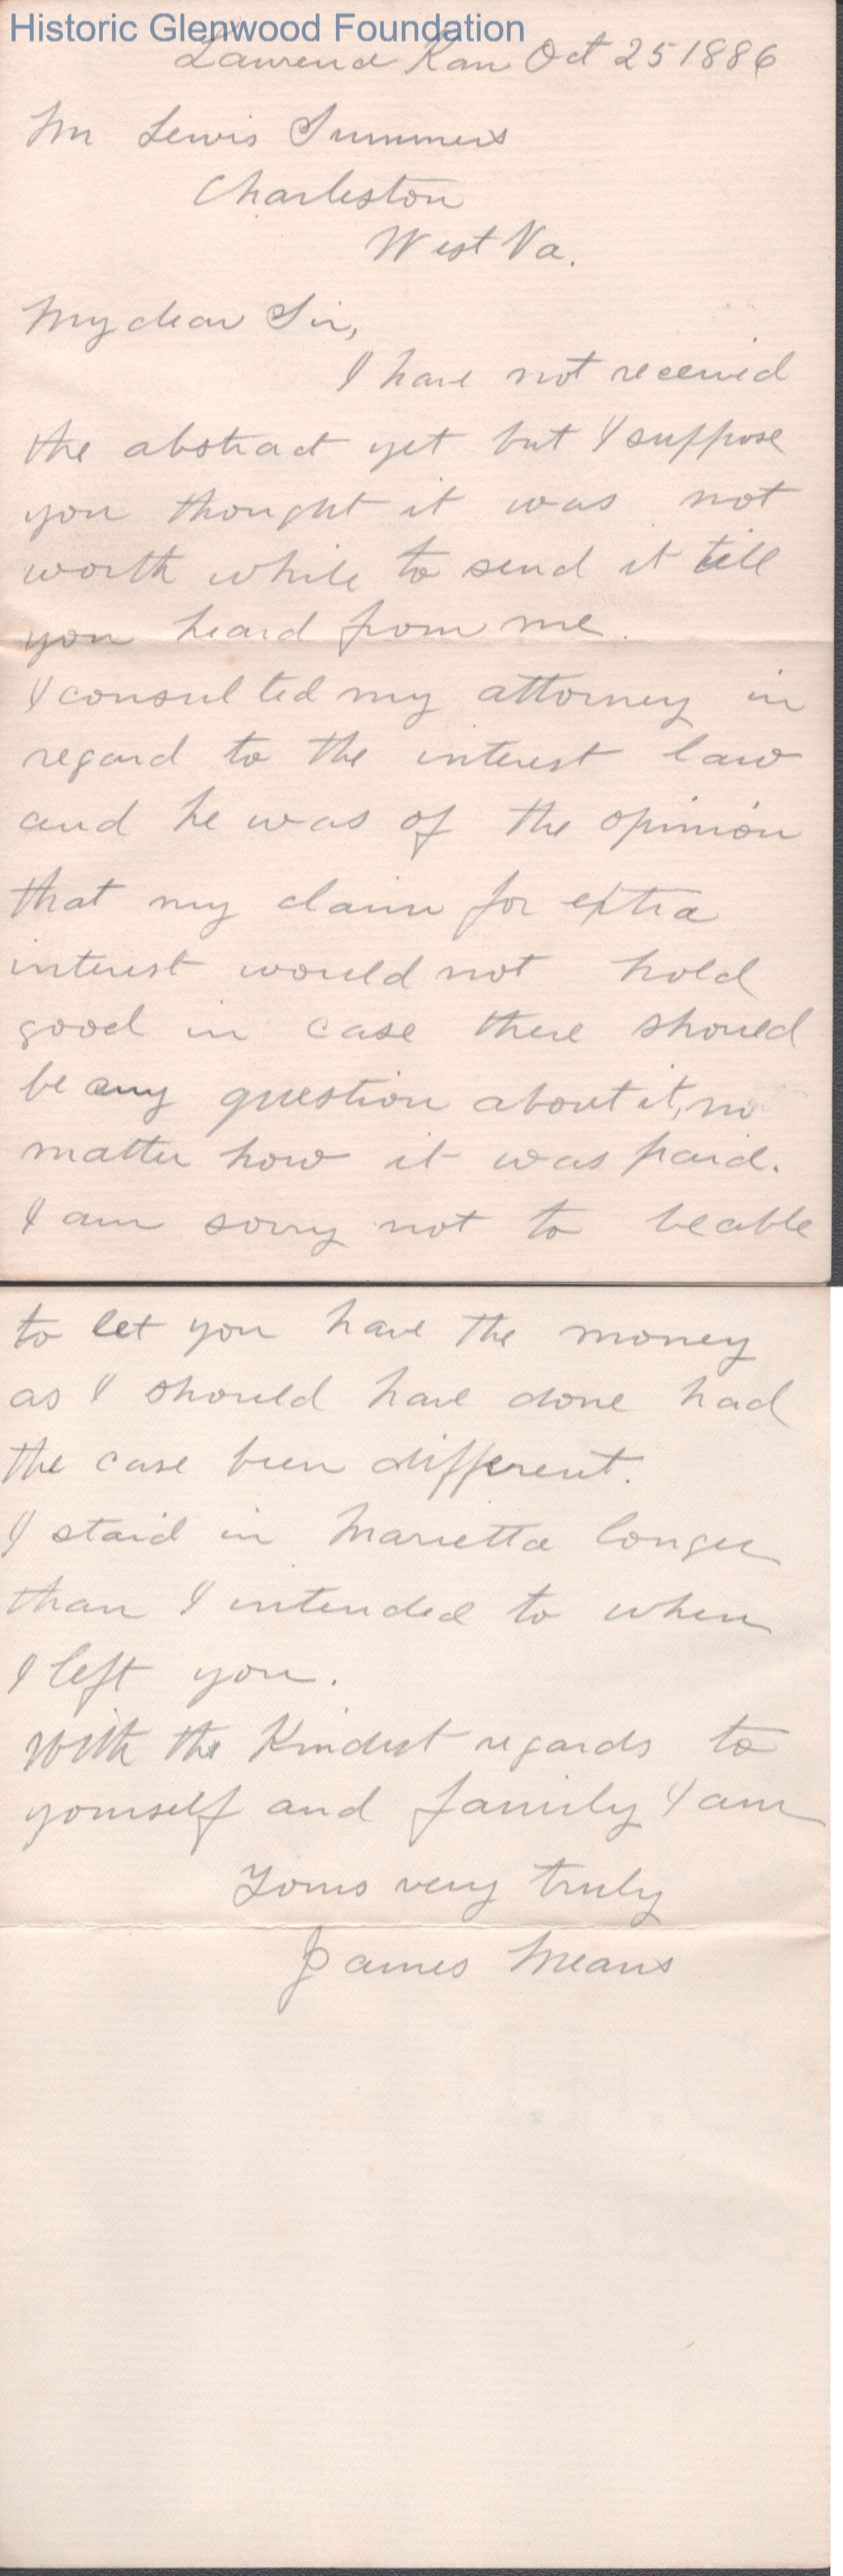 Historic Glenwood Foundation
Lawrence Kan Oct 25 1886
Mr Lewis Summers
Charleston
West Va.
My dear Sir,
I have not received
the abstract yet but I suppose
you thought it was not
worth while to send it till
you heard from me.
I consulted my attorney in
regard to the interest law
and he was of the opinion
that my claim for extra
interest would not hold
good in case there should
be any question about it, no
matter how it was paid.
I am sorry not to be able
to let you have the money
as I should have done had
the case been different.
I staid in Marietta longer
than I intended to when
I left you.
With the Kindest regards to
yourself and family I am
Yours very truly
James Means